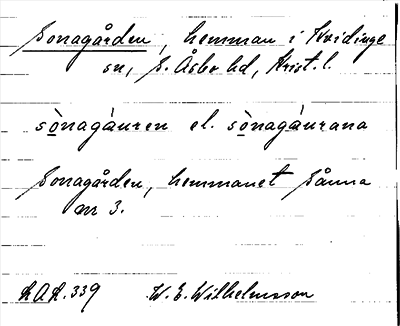 Sonagården, hemman i Kvidinge
sn, S. Åsbo hd, Krist. l.
sònagȧuren el. sònagȧurana
Sonagården, hemmanet Sånna
nr 3.
LAL. 339 W. E. Wilhelmsson